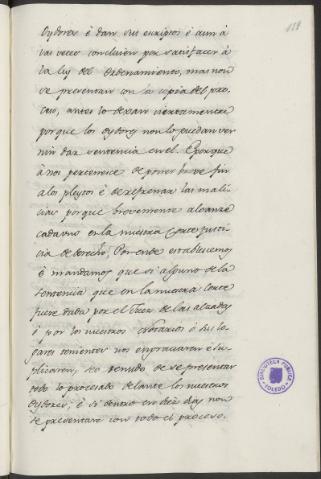 119
Oydores é dan sus escriptos é aun á
las veces conclusion por satisfacer á
la ley del Ordenamiento, mas non
se presentan con la copia del pro-
ceso, antes lo dexan viertamente
porque los oydores non lo puedan ver
nin dar sentencia en el. E porque
á nos pertenesce de poner breve fin
a los pleytos é de refrenar las mali-
cias porque brevemente alcanze
cada uno en la nuestra Corte justi-
cia de derecho; Por ende establescemos
é mandamos que si alguno de la
Sentencia que en la nuestra Corte
fuere dada por el Juez de las alzadas
ó por los nuestros Notarios é sus lo-
gares tenientes nos engraviaren é su-
plicaren, sea tenudo de se presentar
todo lo procesado delante los nuestros
Oydores; é si dentro en diez dias non
se presentare con todo el proceso.
BIBLIOTECA PUBLICA
TOLEDO